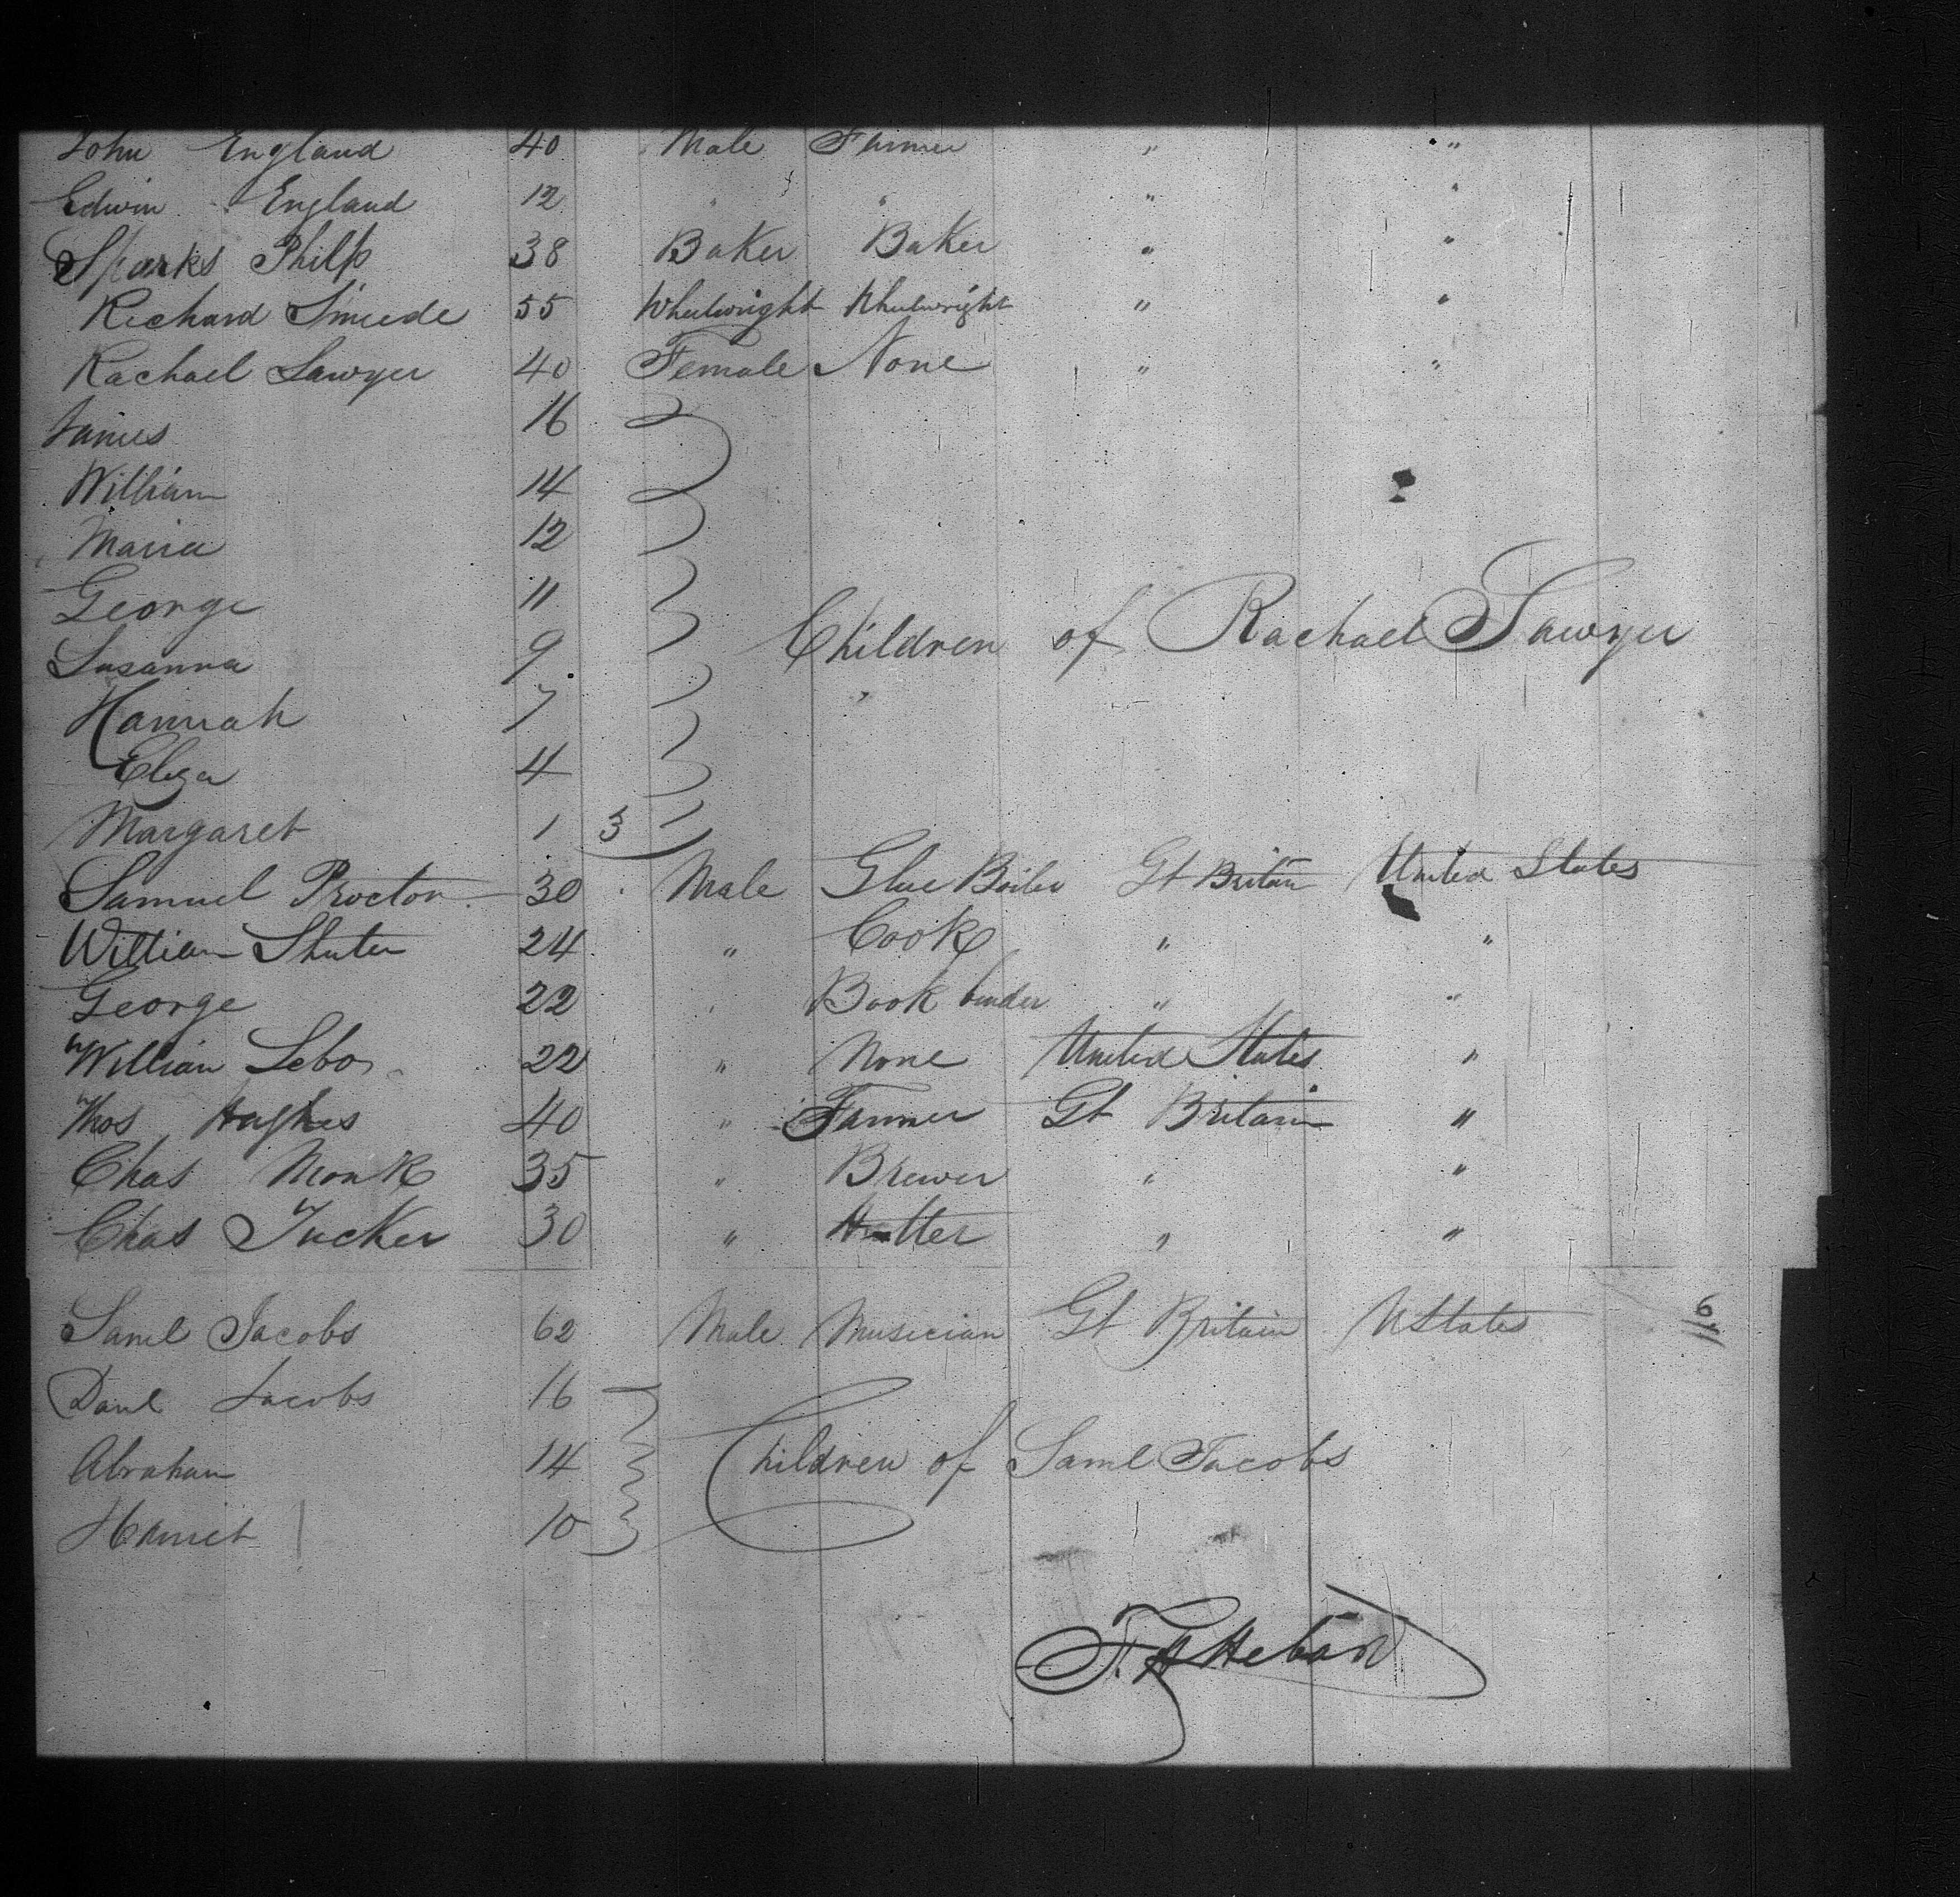 John England 40 Male Farmer " "
Edwin England 12 " " " "
Sparks Philp 38 Baker Baker " "
Richard Smede 55 Wheelwright Wheelwright " "
Rachael Sawyer 40 Female None " "
James 16
William 14
Maria 12
George 11
Susanna 9
Children of Rachael Sawyer
Hannah 7
Eliza 4
Margaret 1 3
Samuel Proctor 30 Male Glue Boiler Gt Britain United States
William Shuter 24 " Cook " "
George 22 " Book binder " "
William Lebo 22 " None United States "
Thos Hughes 40 " Farmer Gt Britain "
Chas Monk 35 " Brewer " "
Chas Tucker 30 " Hatter " "
Saml Jacobs 62 Male Musician Gt Britain UStates
Danl Jacobs 16
Abraham 14 Children of Saml Jacobs
Harriet 10
F. H Hebard